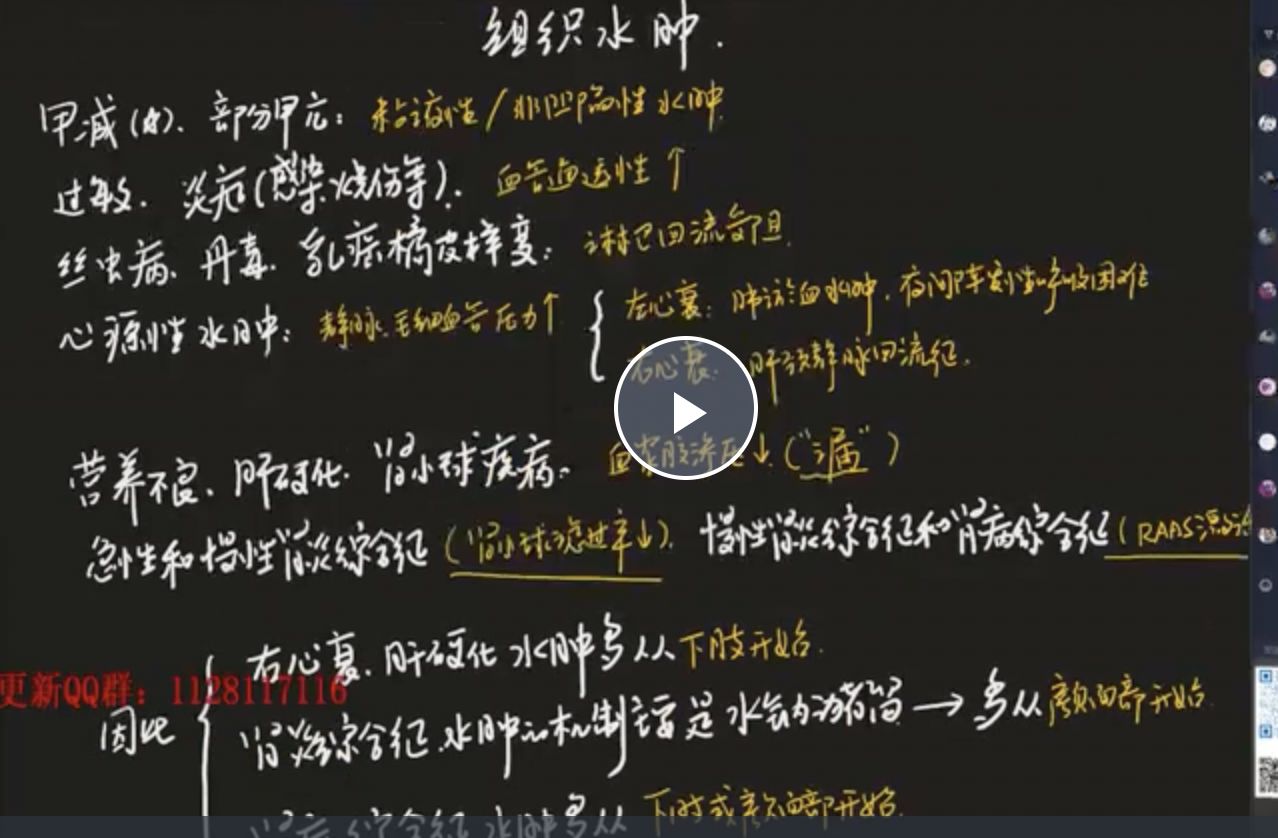 组织水肿.
甲减(水)、部分甲亢：粘液性/非凹陷性水肿
过敏、炎症(感染、烧伤等)、血管通透性↑
丝虫病、丹毒、乳癌橘皮样变：淋巴回流受阻.
心源性水肿：静脉、毛细血管压力↑ { 左心衰：肺淤血水肿，夜间阵发性呼吸困难
右心衰：肝颈静脉回流征.
营养不良、肝硬化、肾小球疾病：血浆胶渗压↓ ("漏")
急性和慢性肾炎综合征(肾小球滤过率↓)、慢性肾炎综合征和肾病综合征(RAAS激活
因此 { 右心衰、肝硬化水肿多从下肢开始.
更新QQ群：1128117116
肾炎综合征.水肿的机制主要是水钠潴留→多从颜面部开始.
肾病综合征水肿多从下肢或颜面部开始.